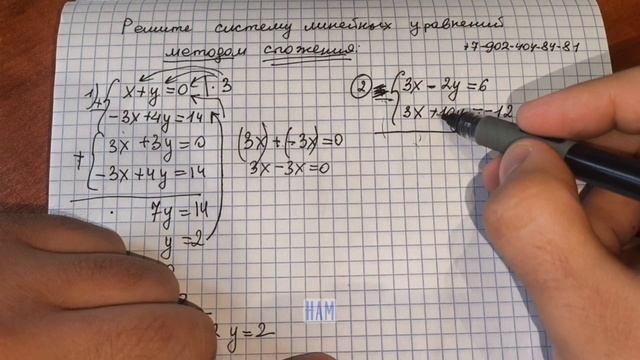 Решите систему линейных уравнений
методом сложения:
+7-902-404-84-81
1) x+y=0 |·3
-3x+4y=14
+ 3x+3y=0
-3x+4y=14
7y=14
y=2
(3x)+(-3x)=0
3x-3x=0
2 3x-2y=6
3x -12
y=2
НАМ